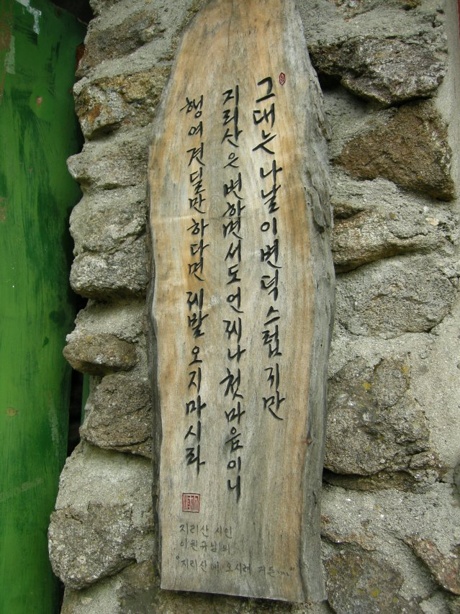 그대는 나날이 변덕스럽지만
지리산은 변하면서도 언제나 첫 마음이니
행여 견딜만 하다면 제발 오지 마시라
지리산 시인
이원규님의
"지리산에 오시려거든..."